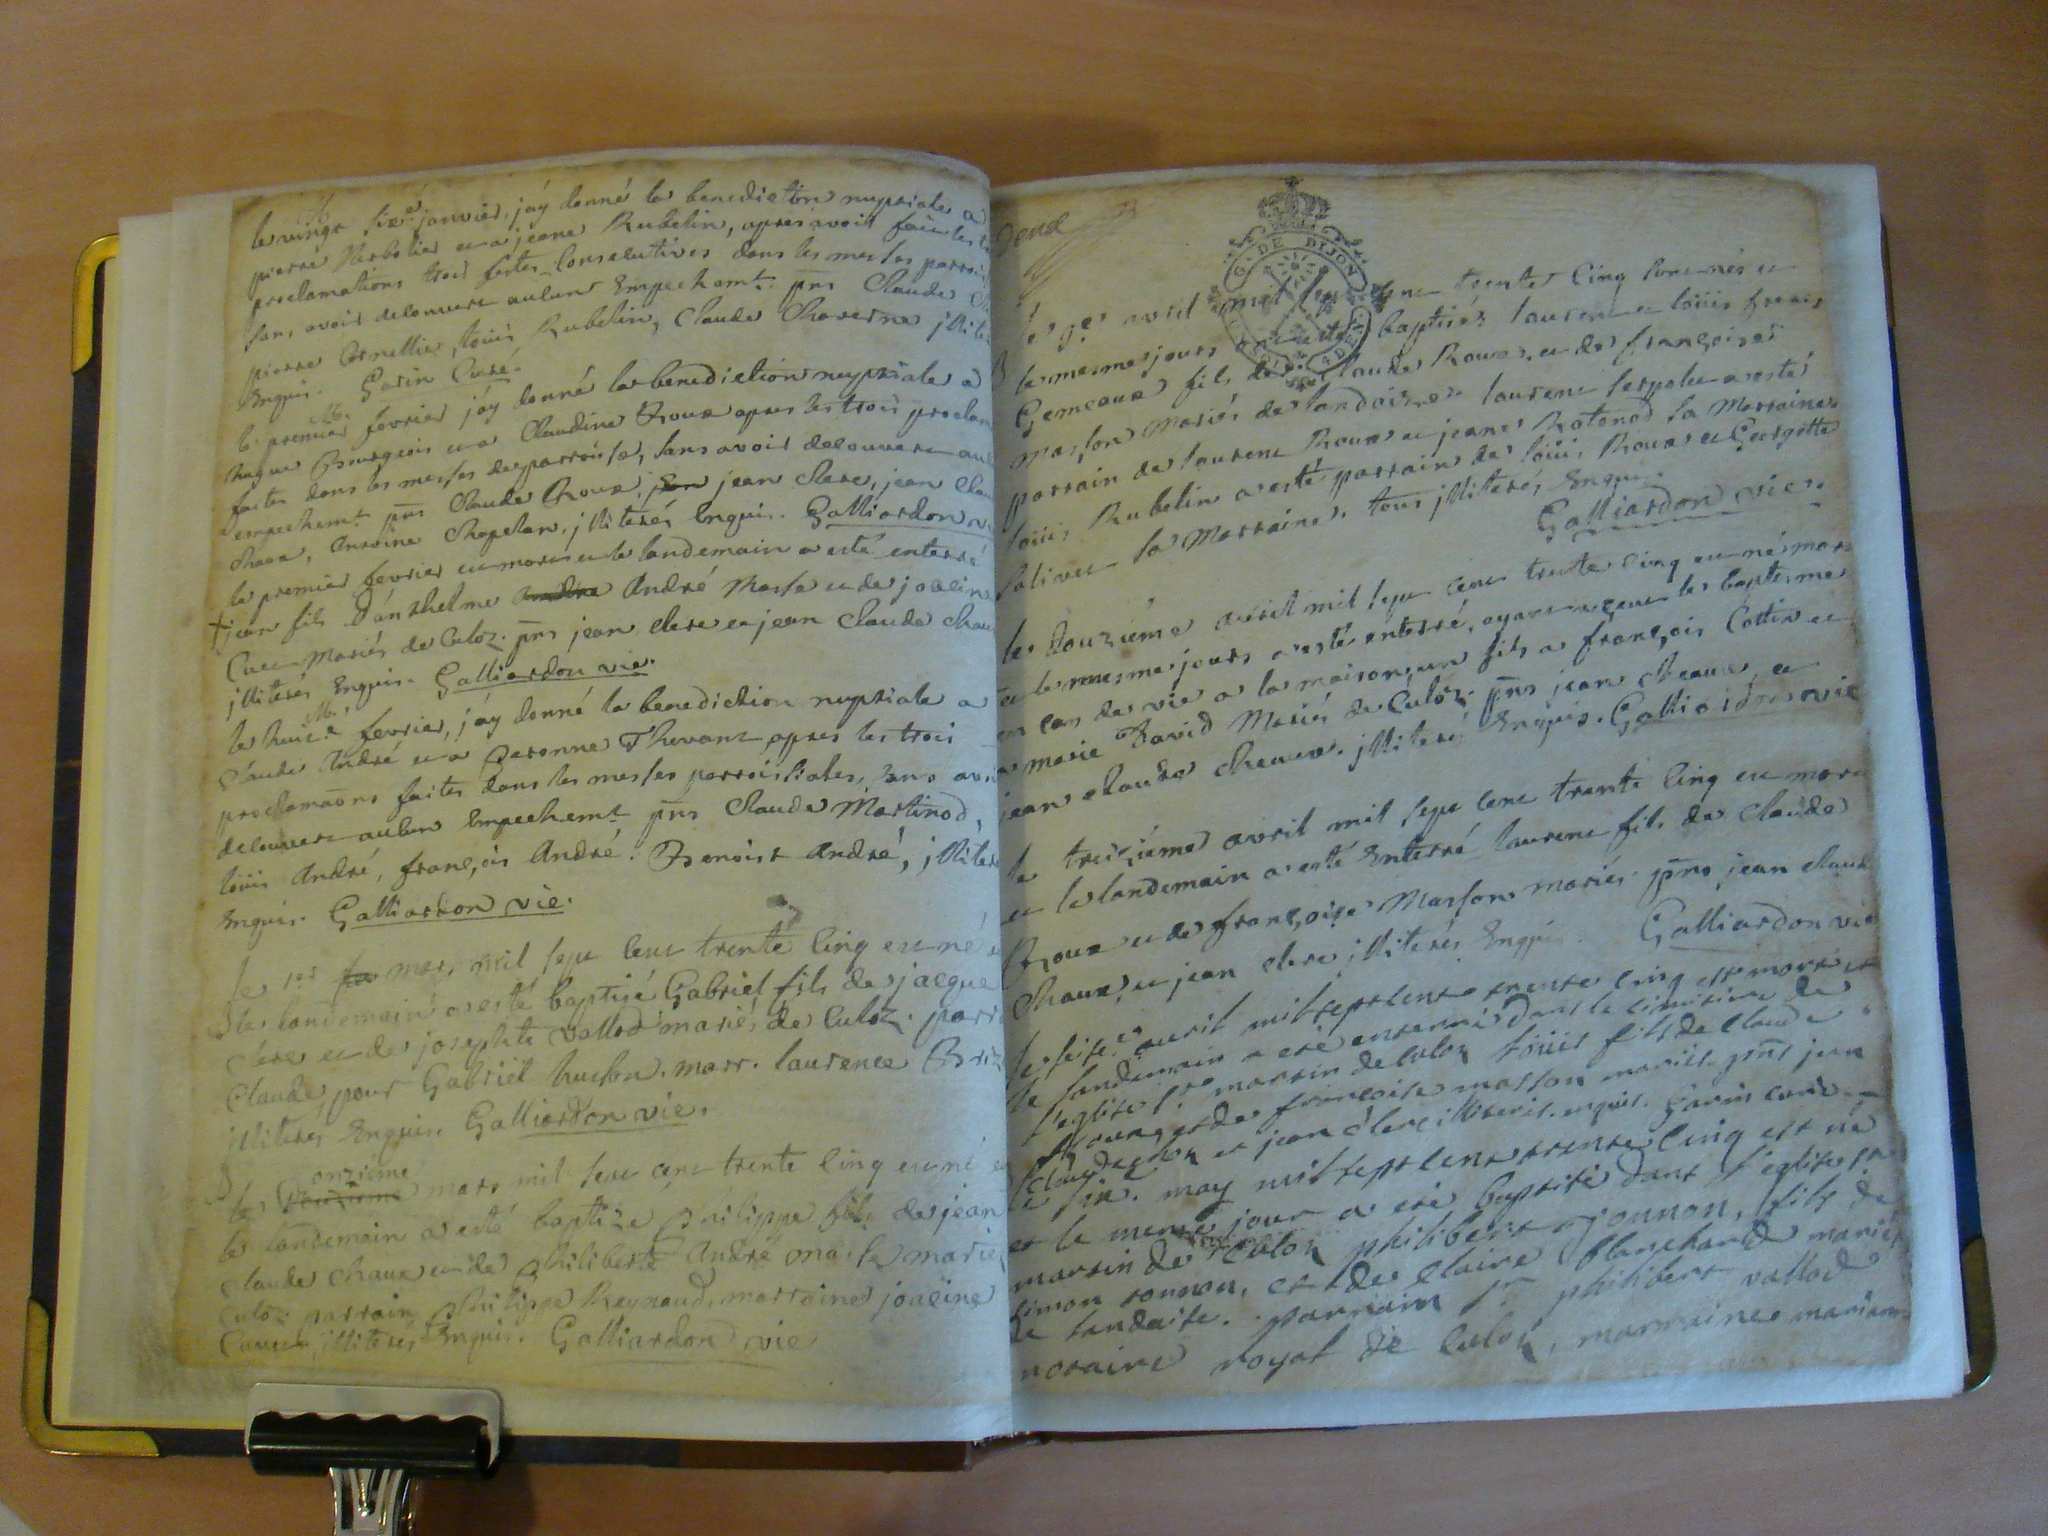 le vingt sixe janvier, j'ay donné la benediction nuptiale a
pierre Berbolier et a jeane Rubelin, apres avoir fait les
proclamations trois festes consecutives dans les messes parrois
san, avoir decouvert aucun Empechemt. pns Claude
pierre Cornellier, loüis Rubelin, Claude Chaverne jlliter
Enquis. Garin Curé.
M.
le premier fevrier j'ay donné la benediction nuptiale a
hugue Bourgeois et a Claudine Roux apres les trois proclam
faites dans les messes de parroisse, sans avoir decouvert auc
empechemt pns Claude Roux, jean jean Clerc, jean Clau
Chaux, Antoine Chapelan, jlliterés Enquis. Galliardon vi
le premier fevrier est mort et le landemain a esté enterré
jean fils d'anthelme andre André Masse et de joacine
Cauet mariés de Culoz. pns jean clerc et jean Claude chau
jlliterés Enquis. Galliardon vie.
M.
le huite fevrier, j'ay donné la benediction nuptiale a
Claude André et a Peronne Thevant apres les trois
proclamaons faites dans les messes parroissiales, sans avoir
decouvert aucun Empechemt pns Claude Martinod,
loüis André, françois André. Benoist André, jlliter
Enquis. Galliardon vie.
B
le 1er fe mars mil sept cent trente cinq est né et
le landemain a esté baptisé Gabriel fils de jacque
clerc et de josephte vallod mariés de Culoz. parr
Claude pour Gabriel hucson. marr. laurence Briz
jlliterés Enquis. Galliardon vie.
B
onzième
le douzième mars mil sept cent trente cinq est né et
le landemain a esté baptizé philippe fils de jean
Claude chaux et de philiberte André masse mariés
Culoz parrain philippe Reynaud, marraine joacine
Cauet jlliterés Enquis. Galliardon vie
deux
G. DE DIJON
le 9e avril mil sept cent trente cinq sont nés et
B le mesme jours ont esté baptisés laurent et loüis freres
Gemeaux fils de Claude Roux et de françoise
masson mariés de landaize. laurent serpolet a esté
parrain de laurent Roux et jeane Rotonod la Marraine
loüis Rubelin a esté parrain de loüis Roux et Georgette
salivet la Marraine. tous jlliterés Enquis
Galliardon vie.
le douzième avril mil sept cent trente cinq est né mort
et le mesme jours a esté enterré, ayant reçeu le baptesme
en cas de vie a la maison, un fils a françois Cottin et
a marie David mariés de Culoz. pns jean cheaux, et
jean claude cheaux. jlliterés Enquis. Galliardon vie
le treizième avril mil sept cent trente cinq est mort
et le landemain a esté Enterré laurent fils de Claude
Roux et de françoise Masson mariés. pns jean claude
Chaux, et jean clerc jlliterés Enquis. Galliardon vie
le seise avril mil sept cent trente cinq est mort et
le landemain a eté enterré dans le cimitiere de
l'eglise st martin de culoz loüis fils de Claude
Roux, et de françoise masson mariés. pns jean
Claude et jean clerc illiteris. enquis. Garin curé
le six. may mil sept cent trente cinq est né
et le meme jour a eté baptisé dans l'eglise st
martin de Culoz philibert jounon, fils de
simon jounon, et de claire blanchard mariés
de landaise. parrain sr philibert vallod
notaire royal de Culoz, marraine mariane